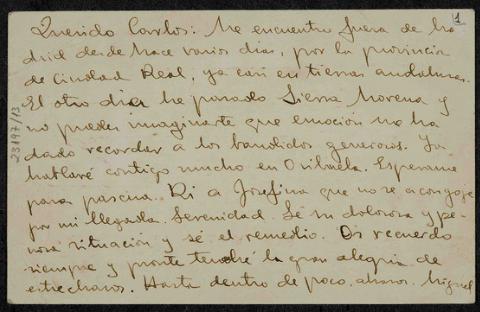 1
Querido Carlos: Me encuentro fuera de Ma
drid desde hace varios días, por la provincia
de Ciudad Real, ya casi en tierras andaluzas.
El otro día he pasado Sierra Morena y
no puedes imaginarte que emoción me ha
dado recordar a los bandidos generosos. Ya
hablaré contigo mucho en Orihuela. Esperame
para pascua. Di a Josefina que no se acongoje
por mi llegada. Serenidad. Sé su dolorosa y pe-
nosa situación y sé el remedio. Os recuerdo
siempre y pronto tendré la gran alegría de
estrecharos. Hasta dentro de poco, abrazos. Miguel
23197/13